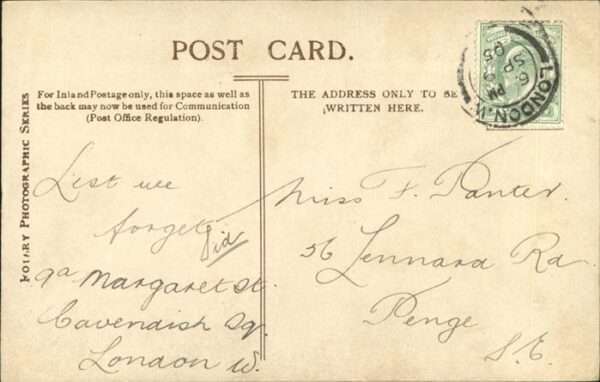 POST CARD.
For Inland Postage only, this space as well as
the back may now be used for Communication
(Post Office Regulation).
THE ADDRESS ONLY TO BE
WRITTEN HERE.
LONDON. W.
PM
6
SP
05
ROTARY PHOTOGRAPHIC SERIES
Lest we
forget
Sid
9a Margaret St.
Cavendish Sq.
London W.
Miss F. Panter.
56 Lennard Rd
Penge
S.E.